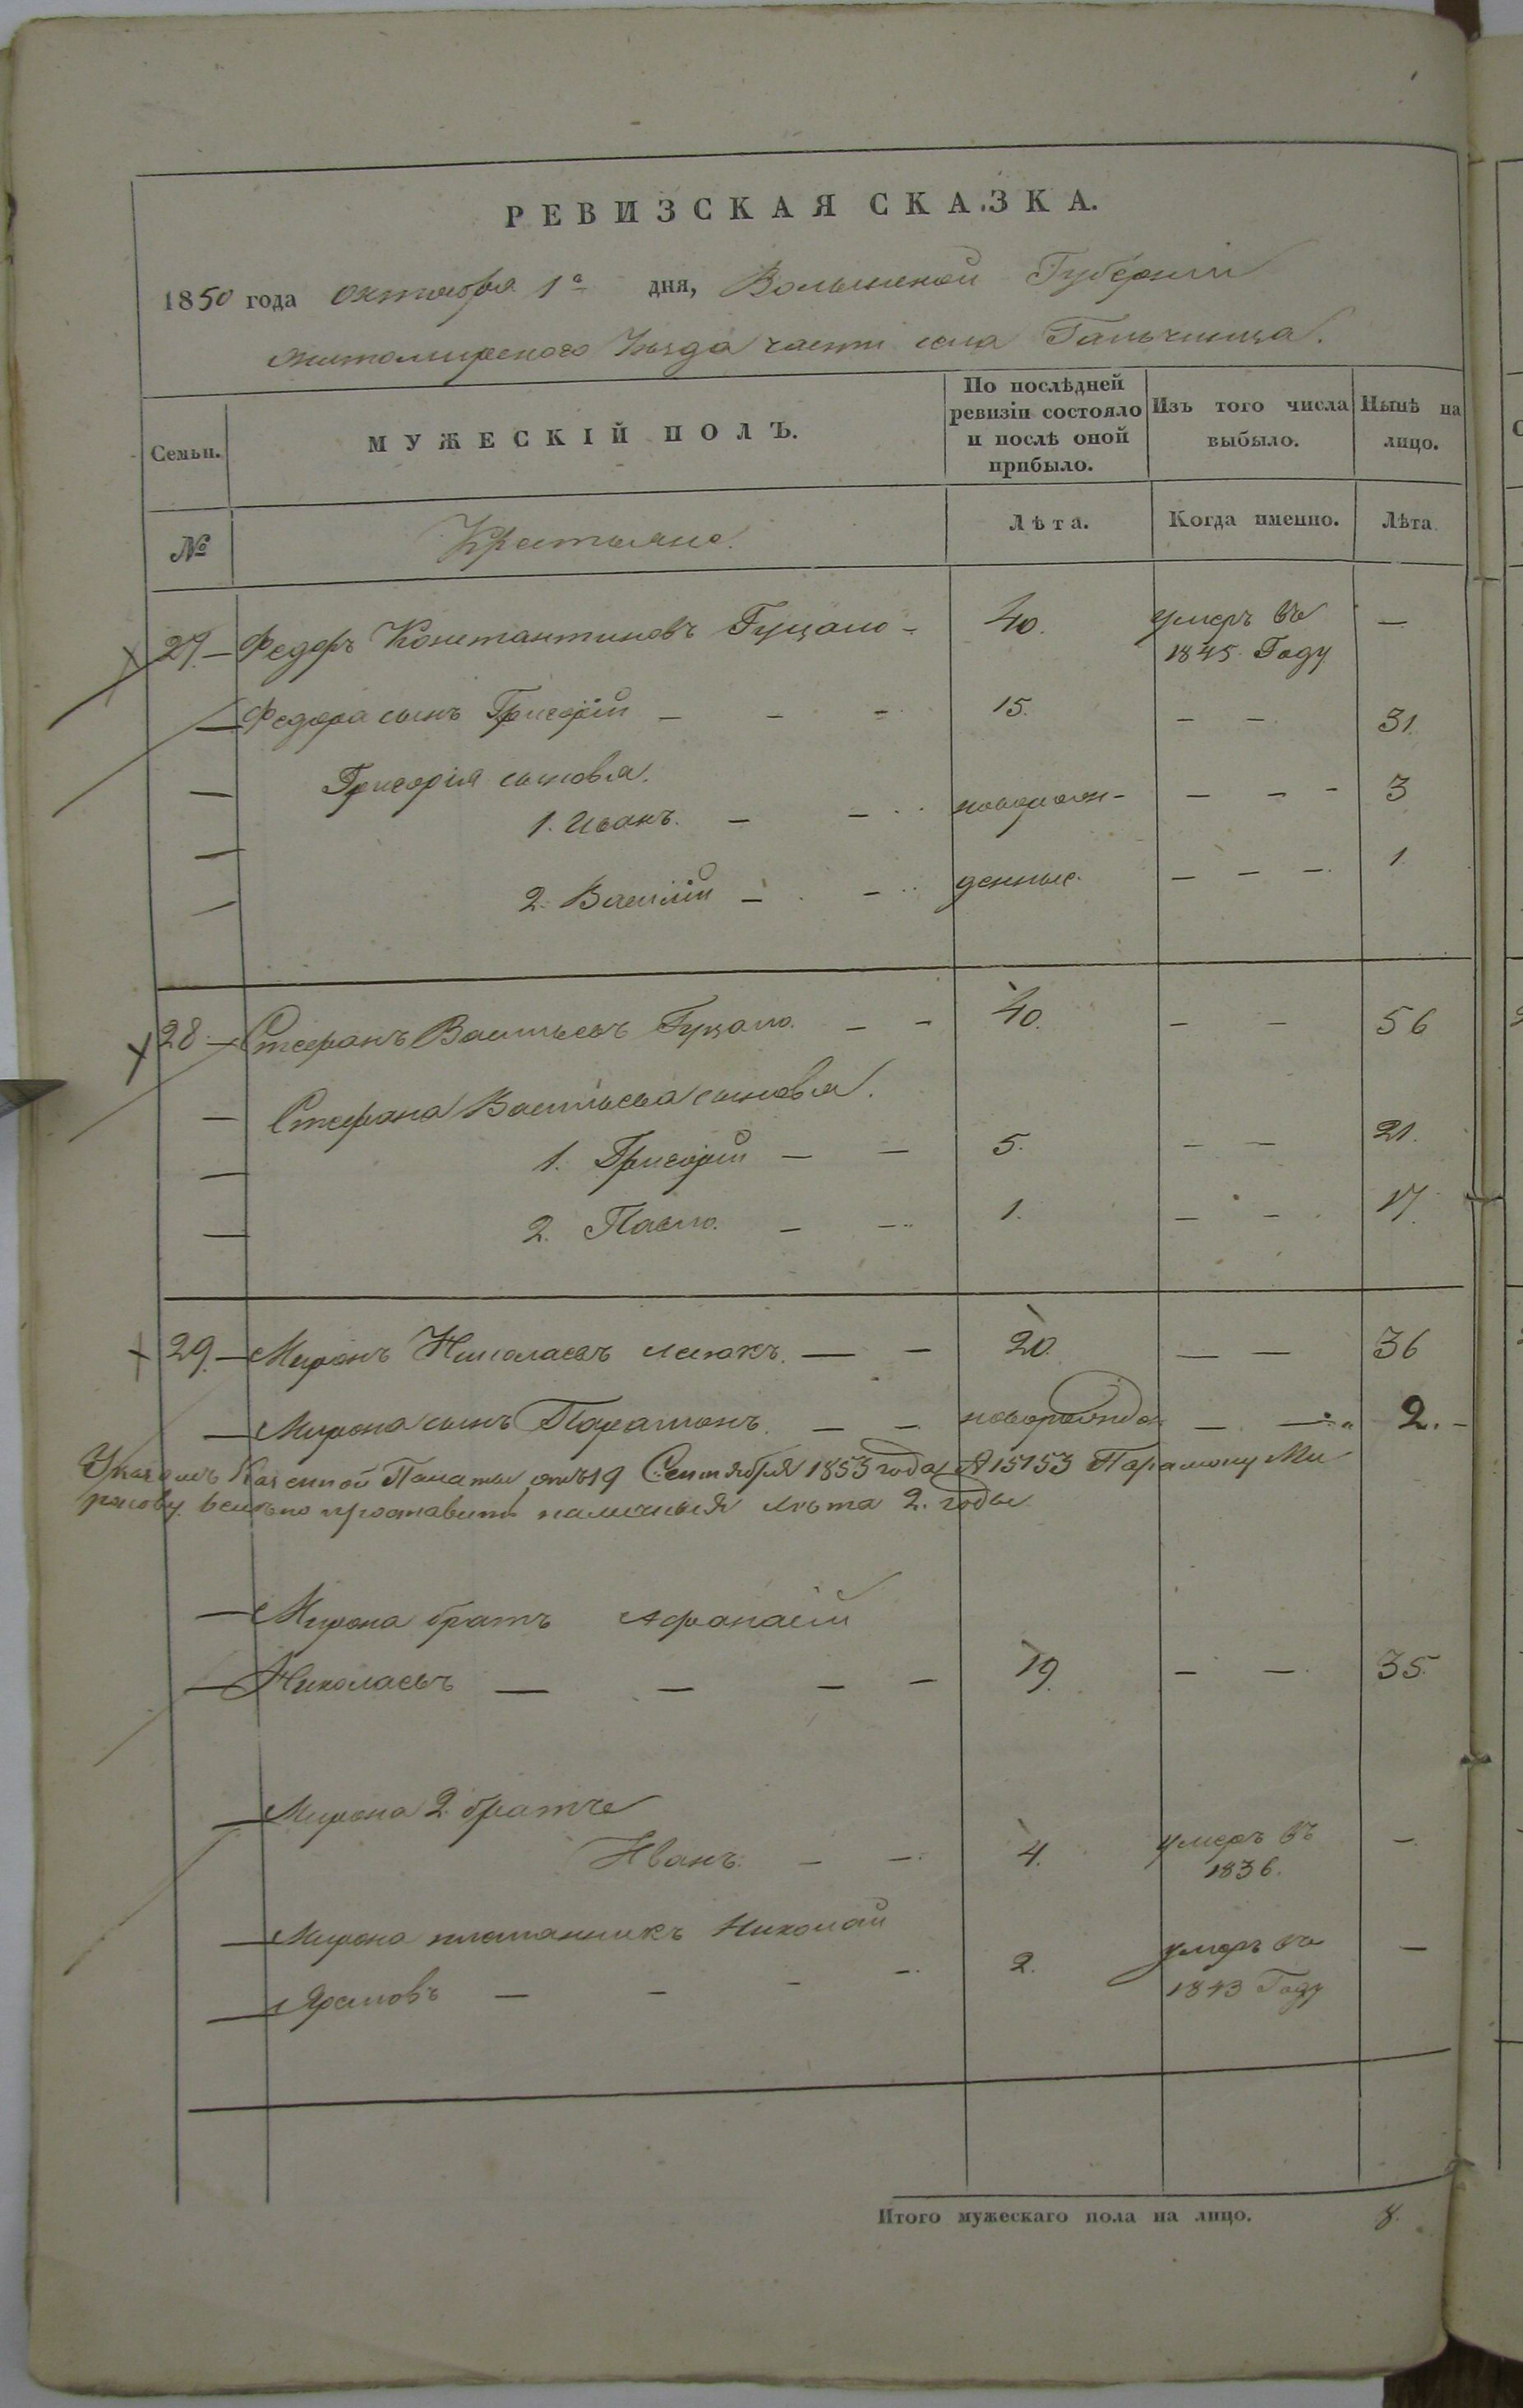 РЕВИЗСКАЯ СКАЗКА.
1850 года октября 1го дня, Волынской Губерніи
Житомирского Уѣзда части села Гальчинца.
Семьи. МУЖЕСКІЙ ПОЛЪ. По послѣдней ревизіи состояло и послѣ оной прибыло. Изъ того числа выбыло. Нынѣ на лицо.
№ Крестьяне. Лѣта. Когда именно. Лѣта.
27 Федоръ Константиновъ Гуцало 40. умеръ въ 1845 Году —
Федора сынъ Григорій 15. — — 31.
Григорія сыновья.
1. Иванъ. — — новорож- — — — 3
2. Василій — — денные. — — — 1
28 Стефанъ Васильевъ Гуцало. — — 40. — — 56
Стефана Васильева сыновья.
1. Григорій — — 5. — — 21.
2. Павло. — — 1. — — 17.
29. Миронъ Николаевъ — — 20. — — 36
Мирона сынъ Парамонъ. — — новорожден — — 2.
Указомъ Казенной Палаты отъ 19 Сентября 1853 года 15153 Парамону Ми
ронову велѣно проставить наличныя лѣта 2. годы
Мирона братъ Афанасій
Николаевъ — — — — 19. — — 35.
Мирона 2 братъ
Иванъ. — — 4. умеръ въ 1836. —
Мирона племянникъ Николай
— — — — 2. умеръ въ 1843 Году —
Итого мужескаго пола на лицо. 8.